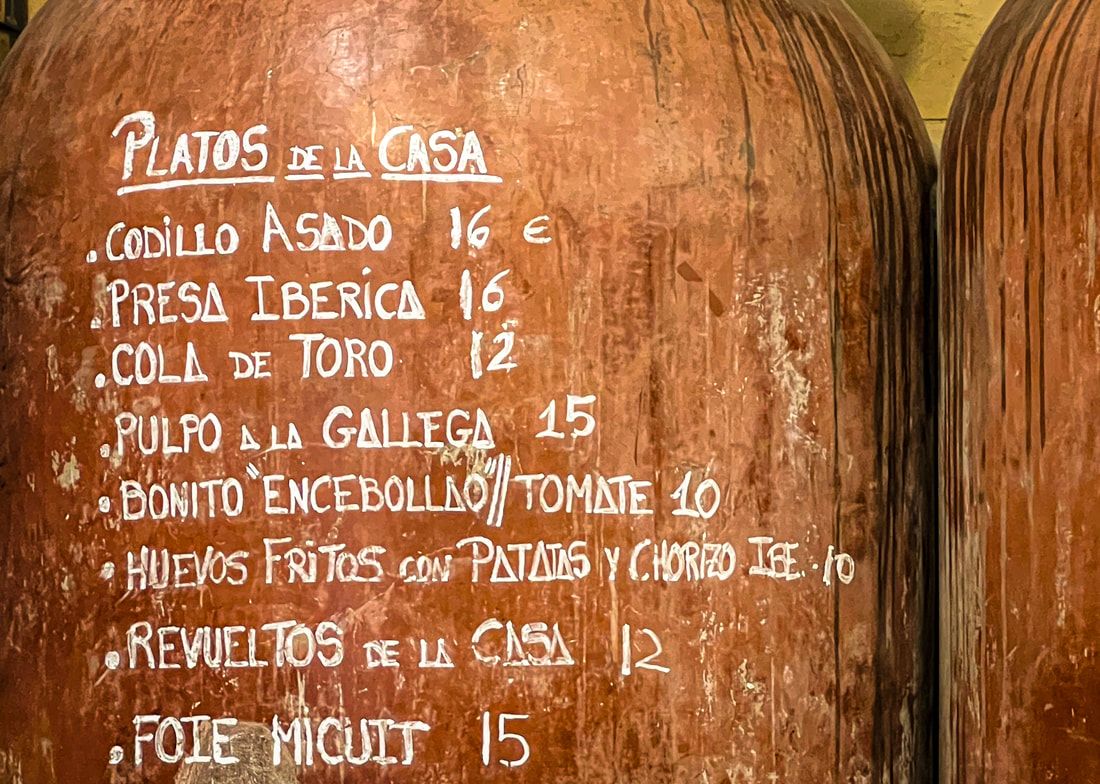 PLATOS DE LA CASA
.CODILLO ASADO 16 €
.PRESA IBERICA 16
.COLA DE TORO 12
.PULPO A LA GALLEGA 15
.BONITO "ENCEBOLLAO"//TOMATE 10
.HUEVOS FRITOS CON PATATAS Y CHORIZO IBE. 10
.REVUELTOS DE LA CASA 12
.FOIE MICUIT 15